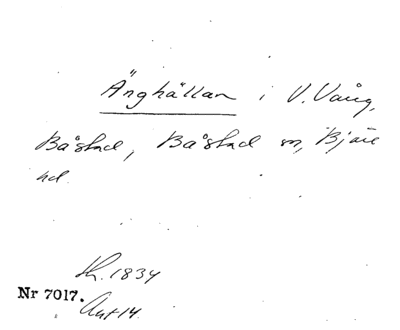 Änghällan i V. Vång,
Båstad, Båstad sn, Bjäre
hd.
Lh. 1834
Nr 7017.
Akt 14.